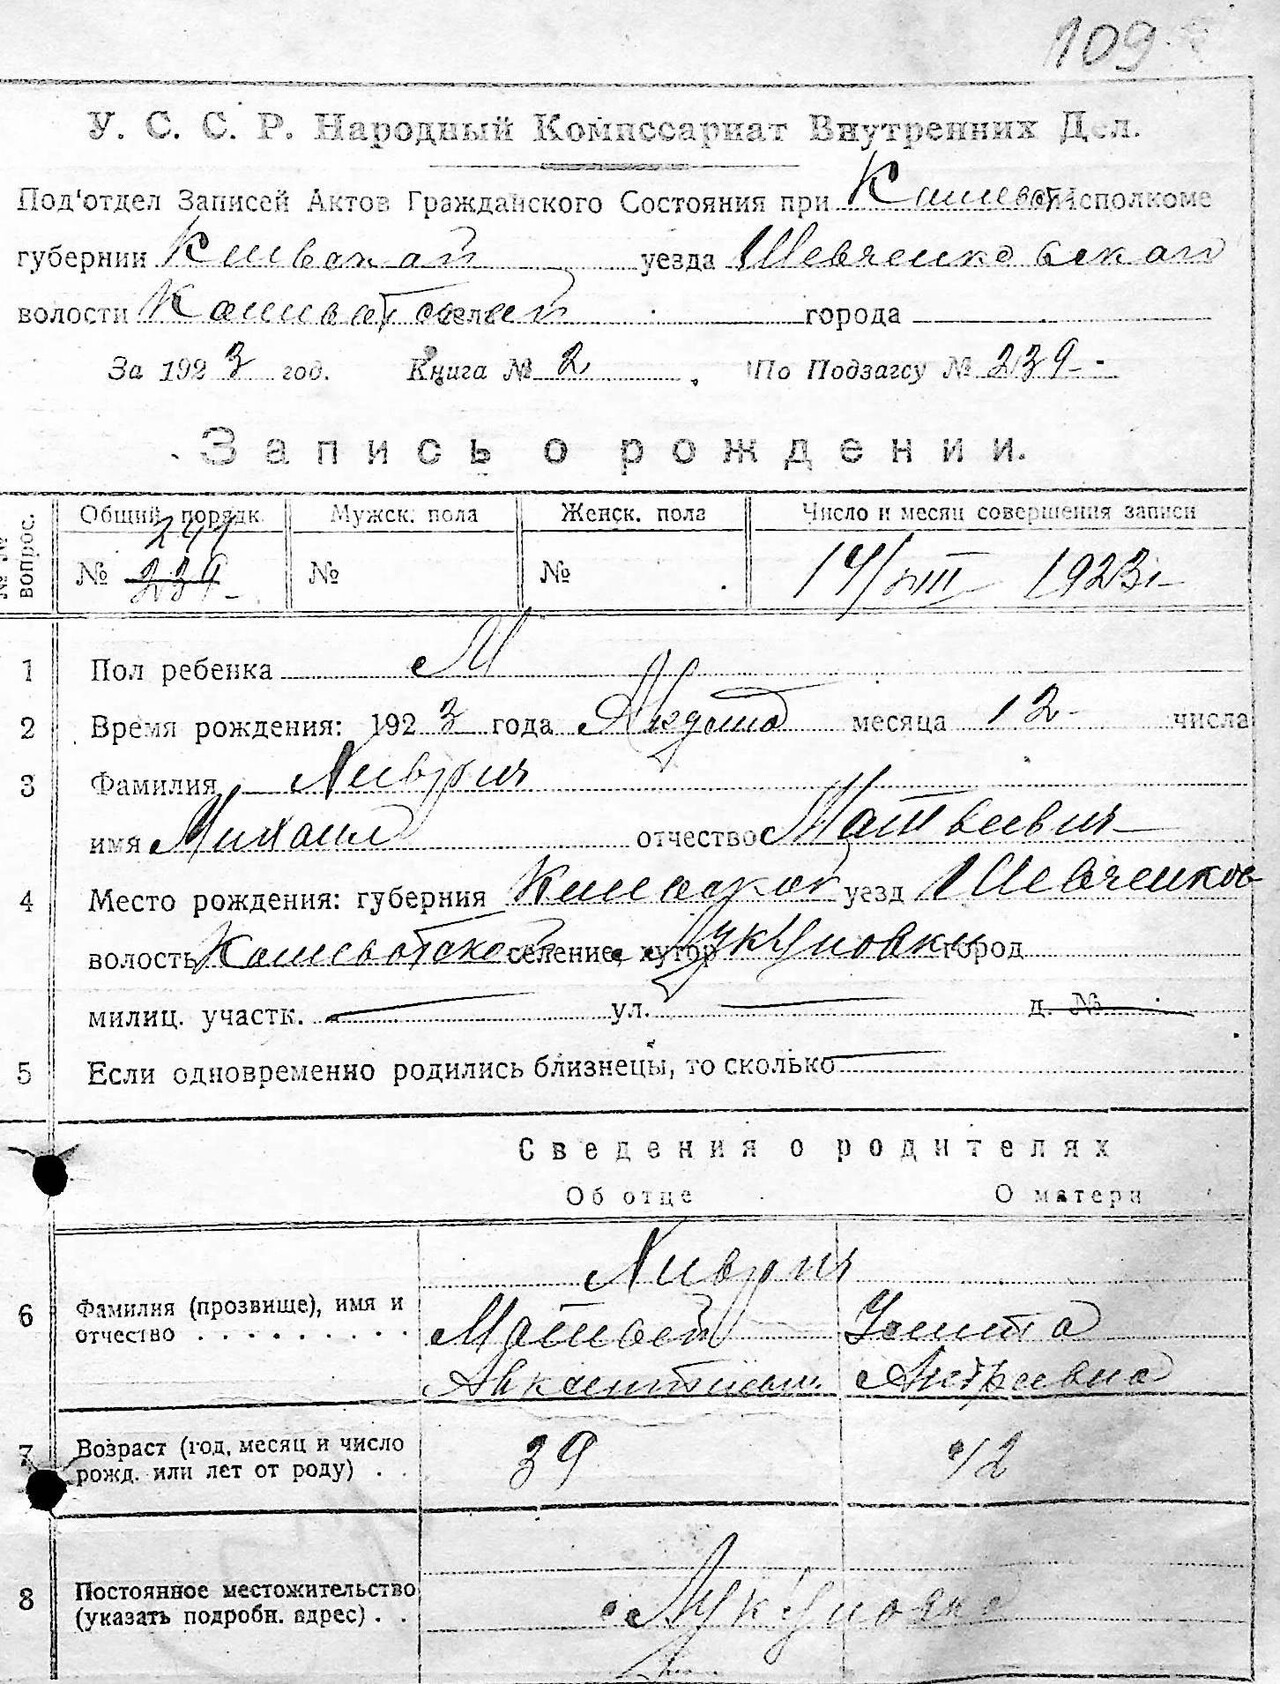 109
У. С. С. Р. Народный Комиссариат Внутренних Дел.
Под'отдел Записей Актов Гражданского Состояния при Кашеват Исполкоме
губернии Киевской уезда Шевченковской
волости Кашеватской села города
За 1923 год. Книга № 2 По Подзагсу № 239
Запись о рождении.
№№ вопрос. Общий порядк. Мужск. пола Женск. пола Число и месяц совершения записи
№ 239 № № 14/VIII 1923 г.
1 Пол ребенка М
2 Время рождения: 1923 года Августа месяца 12 числа
3 Фамилия Хиврич
имя Михаил отчество Матвеевич
4 Место рождения: губерния Киевской уезд Шевченков
волость Кашеватской селение, хутор город
милиц. участк. — ул. — д. №
5 Если одновременно родились близнецы, то сколько —
Сведения о родителях
Об отце О матери
Хиврич
6 Фамилия (прозвище), имя и отчество Матвей
7 Возраст (год, месяц и число рожд. или лет от роду) 39 42
8 Постоянное местожительство (указать подробн. адрес)